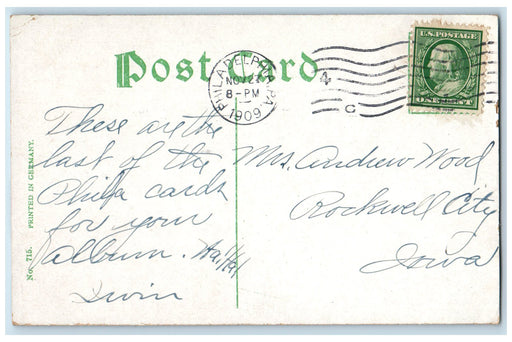 Post Card
U.S. POSTAGE
ONE CENT
PHILADELPHIA, PA
8-PM
1909
4
C
These are the
last of the
Phila cards
for your
album.
Irwin
Mrs. Andrew Wood
Rockwell City
Iowa
No. 715. PRINTED IN GERMANY.